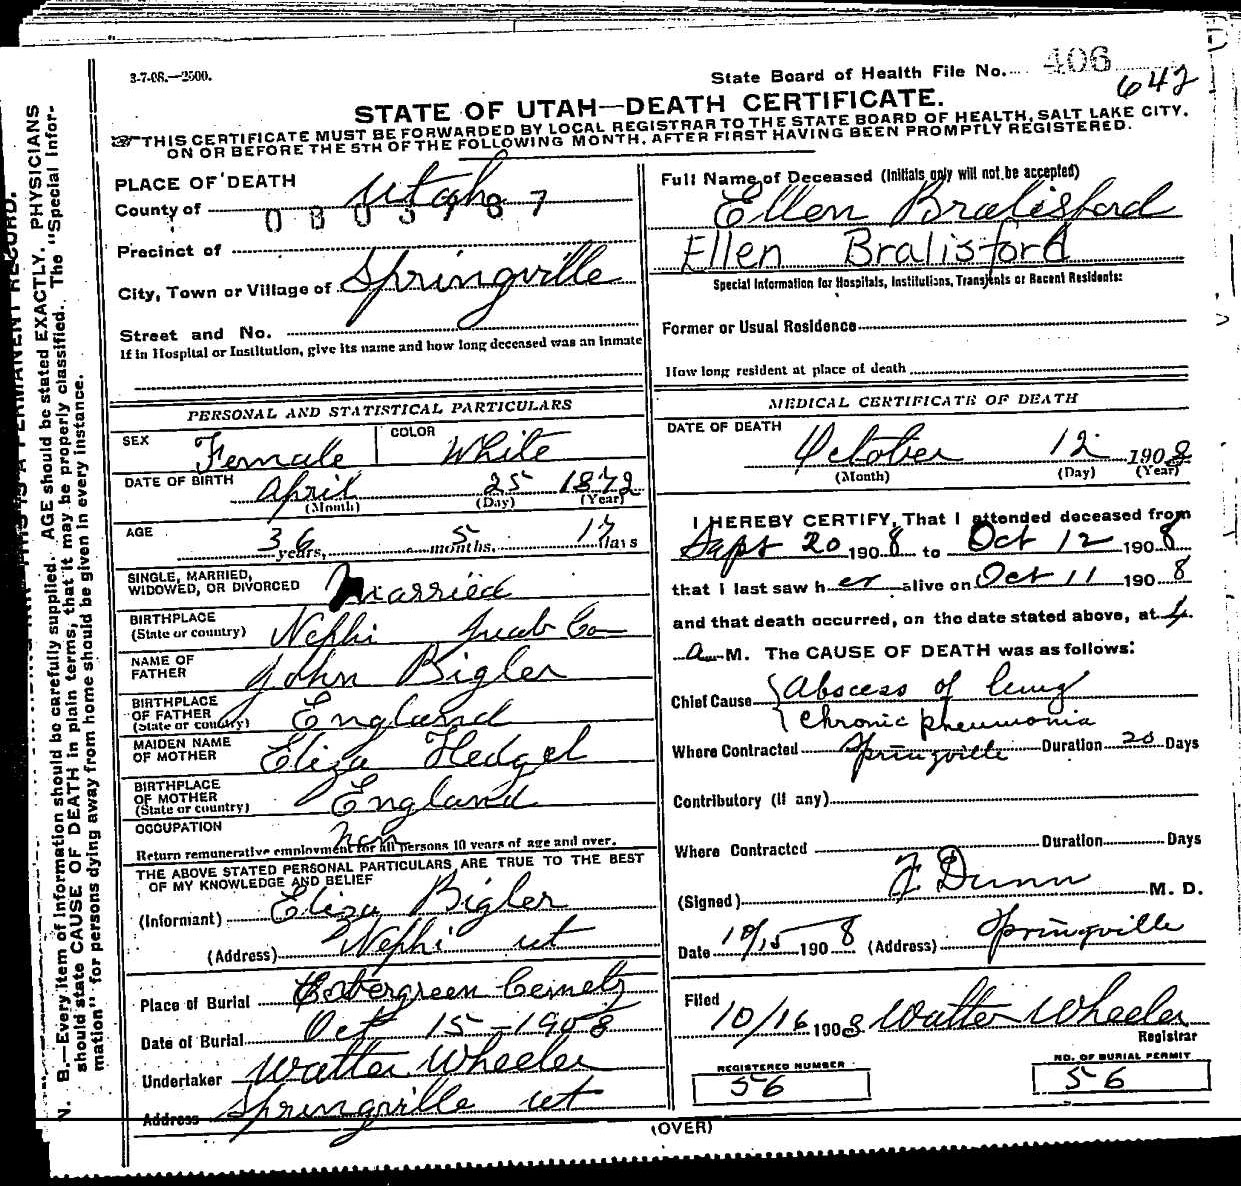 3-7-08.—2500.
State Board of Health File No. 406
642
STATE OF UTAH—DEATH CERTIFICATE.
THIS CERTIFICATE MUST BE FORWARDED BY LOCAL REGISTRAR TO THE STATE BOARD OF HEALTH, SALT LAKE CITY,
ON OR BEFORE THE 5TH OF THE FOLLOWING MONTH, AFTER FIRST HAVING BEEN PROMPTLY REGISTERED.
N. B.—Every item of information should be carefully supplied. AGE should be stated EXACTLY. PHYSICIANS
should state CAUSE OF DEATH in plain terms, that it may be properly classified. The "Special Infor-
mation" for persons dying away from home should be given in every instance.
THIS IS A PERMANENT RECORD.
PLACE OF DEATH
County of Utah
Precinct of
City, Town or Village of Springville
Street and No.
If in Hospital or Institution, give its name and how long deceased was an inmate
PERSONAL AND STATISTICAL PARTICULARS
SEX Female COLOR White
DATE OF BIRTH April 25 1872
(Month) (Day) (Year)
AGE 36 years, 5 months, 17 days
SINGLE, MARRIED,
WIDOWED, OR DIVORCED Married
BIRTHPLACE
(State or country) Nephi Juab Co
NAME OF
FATHER John Bigler
BIRTHPLACE
OF FATHER
(State or country) England
MAIDEN NAME
OF MOTHER Eliza Hedgel
BIRTHPLACE
OF MOTHER
(State or country) England
OCCUPATION
Return remunerative employment for all persons 10 years of age and over.
THE ABOVE STATED PERSONAL PARTICULARS ARE TRUE TO THE BEST
OF MY KNOWLEDGE AND BELIEF
(Informant) Eliza Bigler
(Address) Nephi ut
Place of Burial Evergreen Cemetz
Date of Burial Oct 15-1908
Undertaker Walter Wheeler
Address Springville ut
Full Name of Deceased (Initials only will not be accepted)
Ellen Bralisford
Ellen Bralisford
Special Information for Hospitals, Institutions, Transients or Recent Residents:
Former or Usual Residence
How long resident at place of death
MEDICAL CERTIFICATE OF DEATH
DATE OF DEATH
October 12 1908
(Month) (Day) (Year)
I HEREBY CERTIFY, That I attended deceased from
Sept 20 1908 to Oct 12 1908
that I last saw her alive on Oct 11 1908
and that death occurred, on the date stated above, at 4
a M. The CAUSE OF DEATH was as follows:
Chief Cause Abscess of lung
Chronic pneumonia
Where Contracted Springville Duration 20 Days
Contributory (if any)
Where Contracted Duration Days
(Signed) F Dunn M. D.
Date 10/15 1908 (Address) Springville
Filed 10/16 1908 Walter Wheeler
Registrar
REGISTERED NUMBER
56
NO. OF BURIAL PERMIT
56
(OVER)